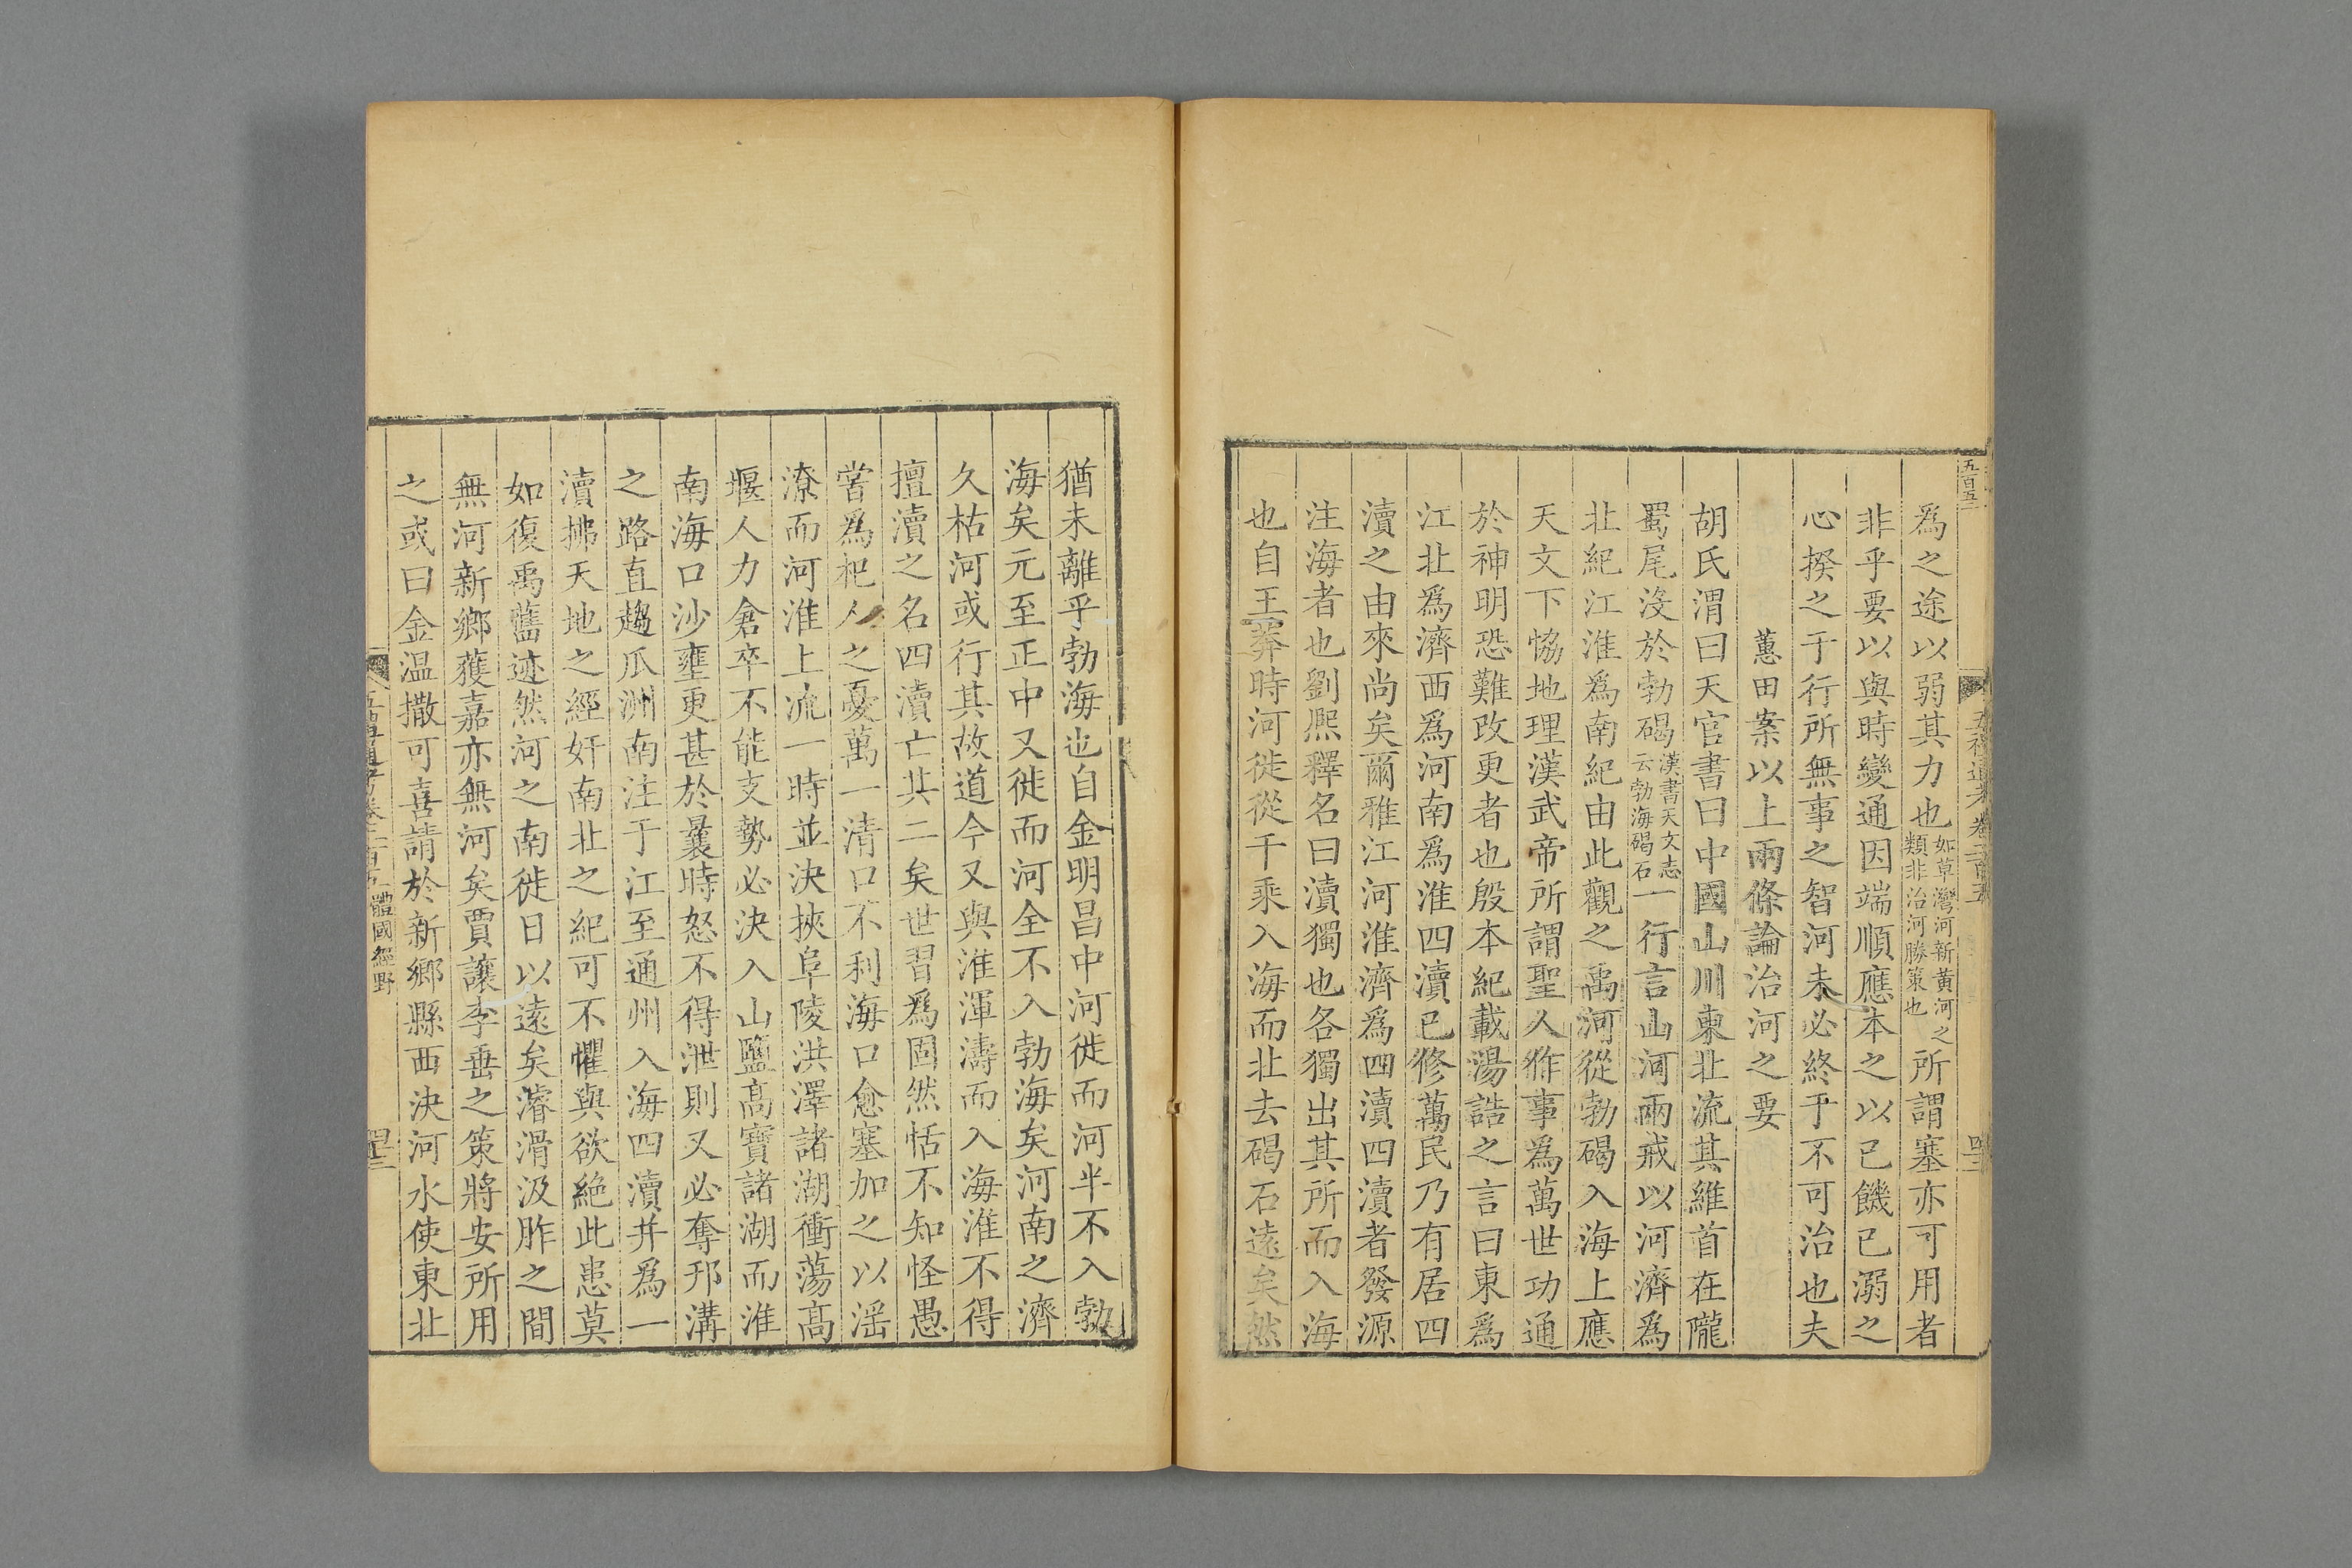 五百五
五禮通考卷二百五
爲之途以弱其力也如草灣河新黄河之類非治河勝策也所謂塞亦可用者
非乎要以與時變通因端順應本之以已饑已溺之
心揆之于行所無事之智河未必終于不可治也夫
蕙田案以上兩條論治河之要
胡氏渭曰天官書曰中國山川東北流其維首在隴
蜀尾没於勃碣漢書天文志云勃海碣石一行言山河兩戒以河濟爲
北紀江淮爲南紀由此觀之禹河從勃碣入海上應
天文下恊地理漢武帝所謂聖人作事爲萬世功通
於神明恐難改更者也殷本紀載湯誥之言曰東爲
江北爲濟西爲河南爲淮四瀆已修萬民乃有居四
瀆之由來尚矣爾雅江河淮濟爲四瀆四瀆者發源
注海者也劉熈釋名曰瀆獨也各獨出其所而入海
也自王莽時河徙從千乘入海而北去碣石遠矣然
猶未離乎勃海也自金明昌中河徙而河半不入勃
海矣元至正中又徙而河全不入勃海矣河南之濟
久枯河或行其故道今又與淮渾濤而入海淮不得
擅瀆之名四瀆亡其二矣世習爲固然恬不知怪愚
嘗爲杞人之憂萬一清口不利海口愈塞加之以淫
潦而河淮上流一時並決挾阜陵洪澤諸湖衝蕩高
堰人力倉卒不能支勢必決入山鹽高寶諸湖而淮
南海口沙壅更甚於曩時怒不得泄則又必奪邗溝
之路直趨瓜洲南注于江至通州入海四瀆并爲一
瀆拂天地之經奸南北之紀可不懼與欲絶此患莫
如復禹舊迹然河之南徙日以遠矣濬滑汲胙之間
無河新鄉獲嘉亦無河矣賈讓李垂之策將安所用
之或曰金温撒可喜請於新鄉縣西決河水使東北
五禮通考卷二百五 體國經野